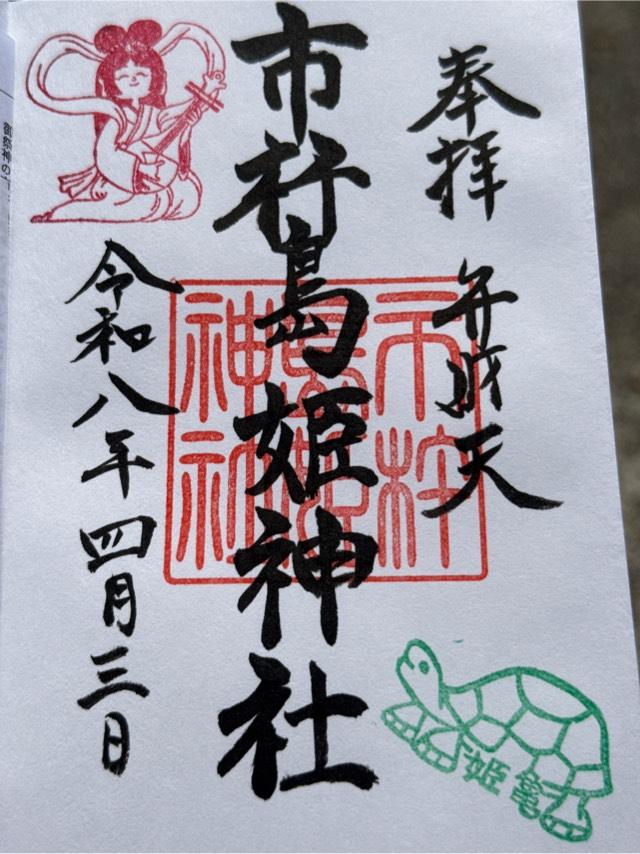 奉拝 弁財天
市杵島姫神社
市杵
島姫
神社
令和八年四月三日
姫亀
御祭神の